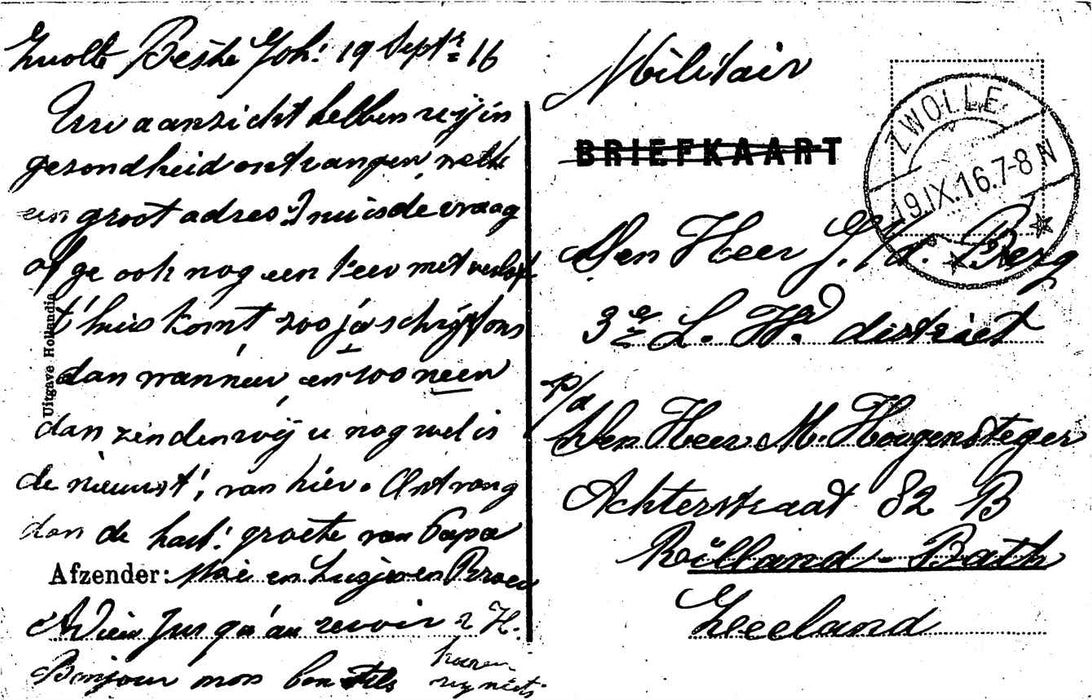 Zwolle Beste Joh! 19 Septr 16
Uw aanzicht hebben wij in
gezondheid ontvangen, welk
een groot adres! nu is de vraag
of ge ook nog een keer met verlof
t'huis komt zoo ja schrijft ons
dan wanneer en zoo neen
dan zenden wij u nog wel is
de nieuwst', van hier. Ontvang
dan de hart: groete van Papa
Afzender: Moe en Zusje en Broer
Adieu Jus qu'au revoir H.
Bonjour mon bon fils
hooren
wy niets
Uitgave Hollandia
Militair
BRIEFKAART
ZWOLLE
19.IX.16.7-8 N
Den Heer J. v.d. Berg
3e L. W. district
p/a
Den Heer M. Hoogensteger
Achterstraat 82 B
Rilland-Bath
Zeeland